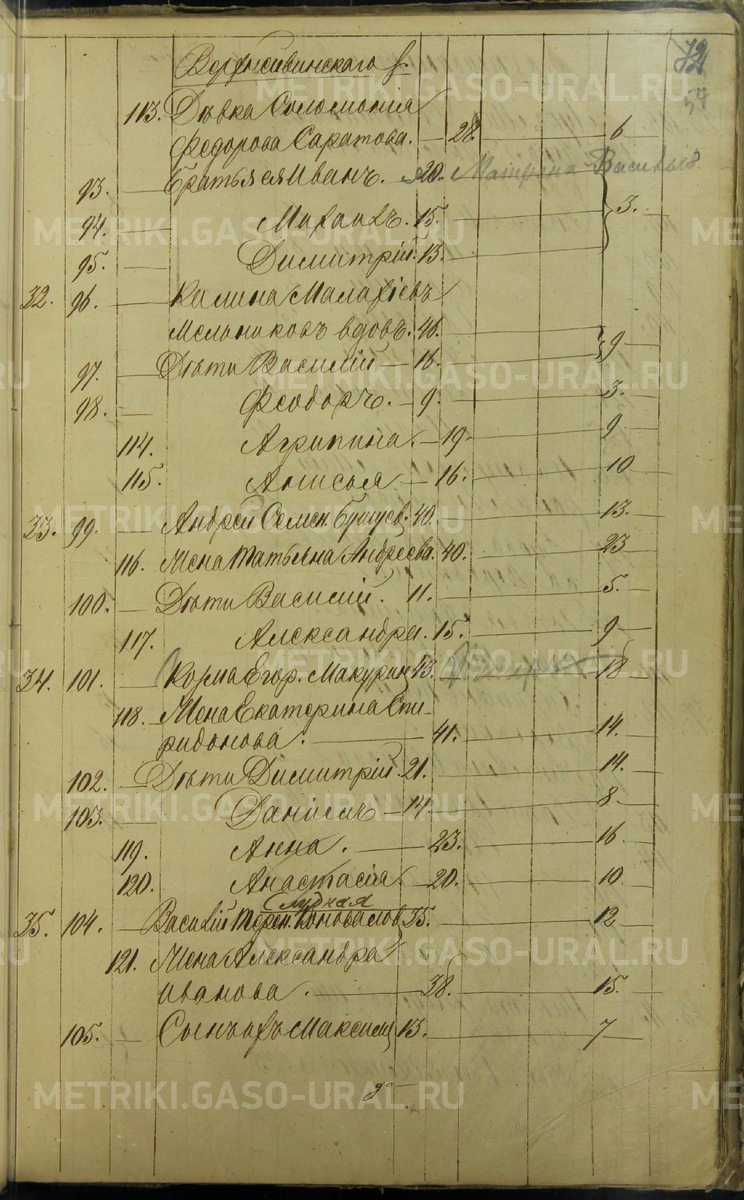 72
57
Верхисивинскаго
113. Дѣвка Соломонія
Федорова Саратова. — 28. — 6
93. — Братья ея Иванъ. 20. Матрена Василь
94. — Михаилъ. 15. — 3.
95. — Димитрій. 13.
32. 96. — Калина Малахіевъ
Мельниковъ вдовъ. 46.
97. — Дѣти Василій — 16. — 9
98. — Феодоръ. — 9. — 3.
114. Агрипина. — 19 — 9
115. Анисья — 16. — 10
33. 99. — Андрей Семен 40. — 13.
116. Жена Татьяна Андреева. 40. — 23
100. — Дѣти Василій. 11. — 5.
117. Александра. 15. — 9
34. 101. — Козма Егор. Макурин 43. — 18
118. Жена Екатерина Спи-
ридонова. — 41. — 14.
102. — Дѣти Димитрій. 21. — 14.
103. — Даніилъ — 14 — 8
119. Анна. — 23. — 16
120. Анастасія. 20. — 10
35. 104. — Василій Терен. Коновалов 35. — 12
121. Жена Александра
Иванова. — 38. — 15.
105. — Сынъ ихъ Максим 13. — 7
METRIKI.GASO-URAL.RU